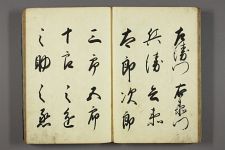 左衛門 右衛門
兵衛 兵衛
太郎 次郎
三郎 五郎
十郎 之進
之助 之丞